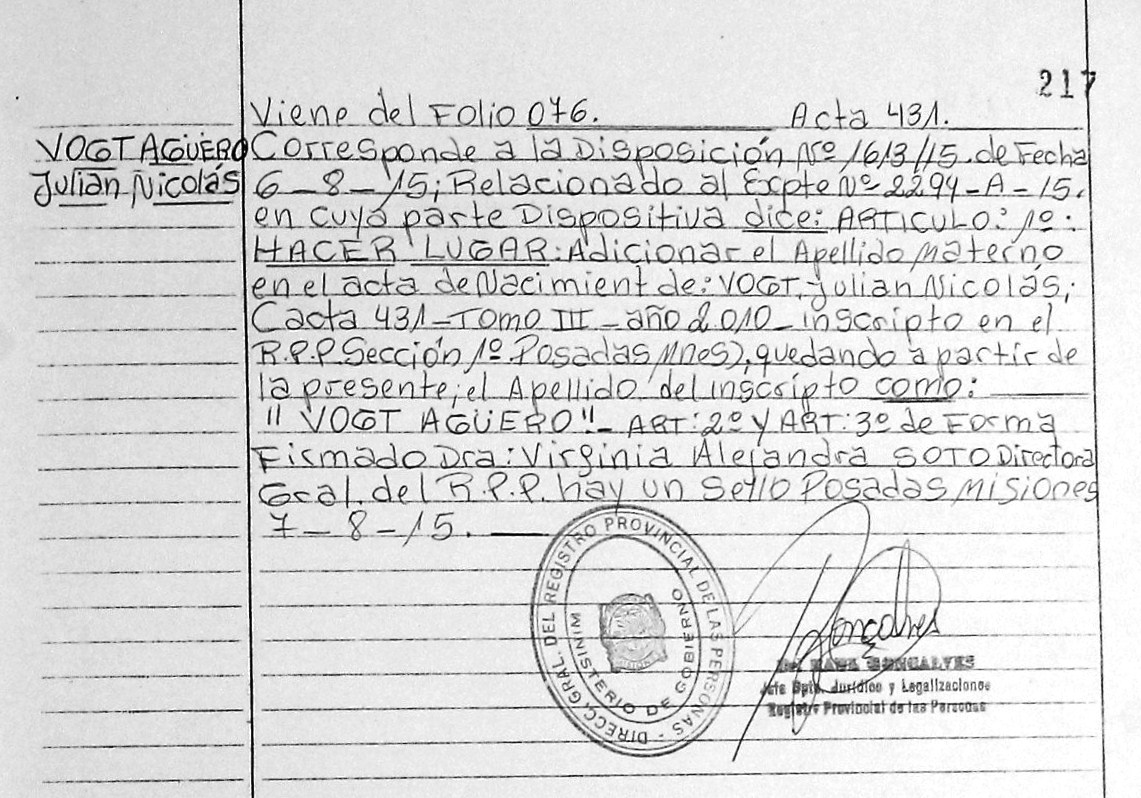 217
Viene del Folio 076. Acta 431.
VOGT AGÜERO
Julián Nicolás
Corresponde a la Disposición Nº 1613/15. de Fecha
6-8-15; Relacionado al Expte Nº 2294-A-15.
en cuya parte Dispositiva dice: ARTICULO: 1º:
HACER LUGAR: Adicionar el Apellido Materno
en el acta de Nacimient de: VOGT, Julian Nicolás,
(acta 431-Tomo III-año 2.010-inscripto en el
R.P.P Sección 1º Posadas Mnes), quedando a partir de
la presente; el Apellido del inscripto como:
"VOGT AGÜERO"- ART: 2º Y ART: 3º de Forma
Firmado Dra: Virginia Alejandra SOTO Directora
Gral. del R.P.P. hay un sello Posadas Misiones
7-8-15.
DIRECC. GRAL. DEL REGISTRO PROVINCIAL DE LAS PERSONAS -
MINISTERIO DE GOBIERNO
Goncalves
GONCALVES
Jefe Dpto. Jurídico y Legalizaciones
Registro Provincial de las Personas